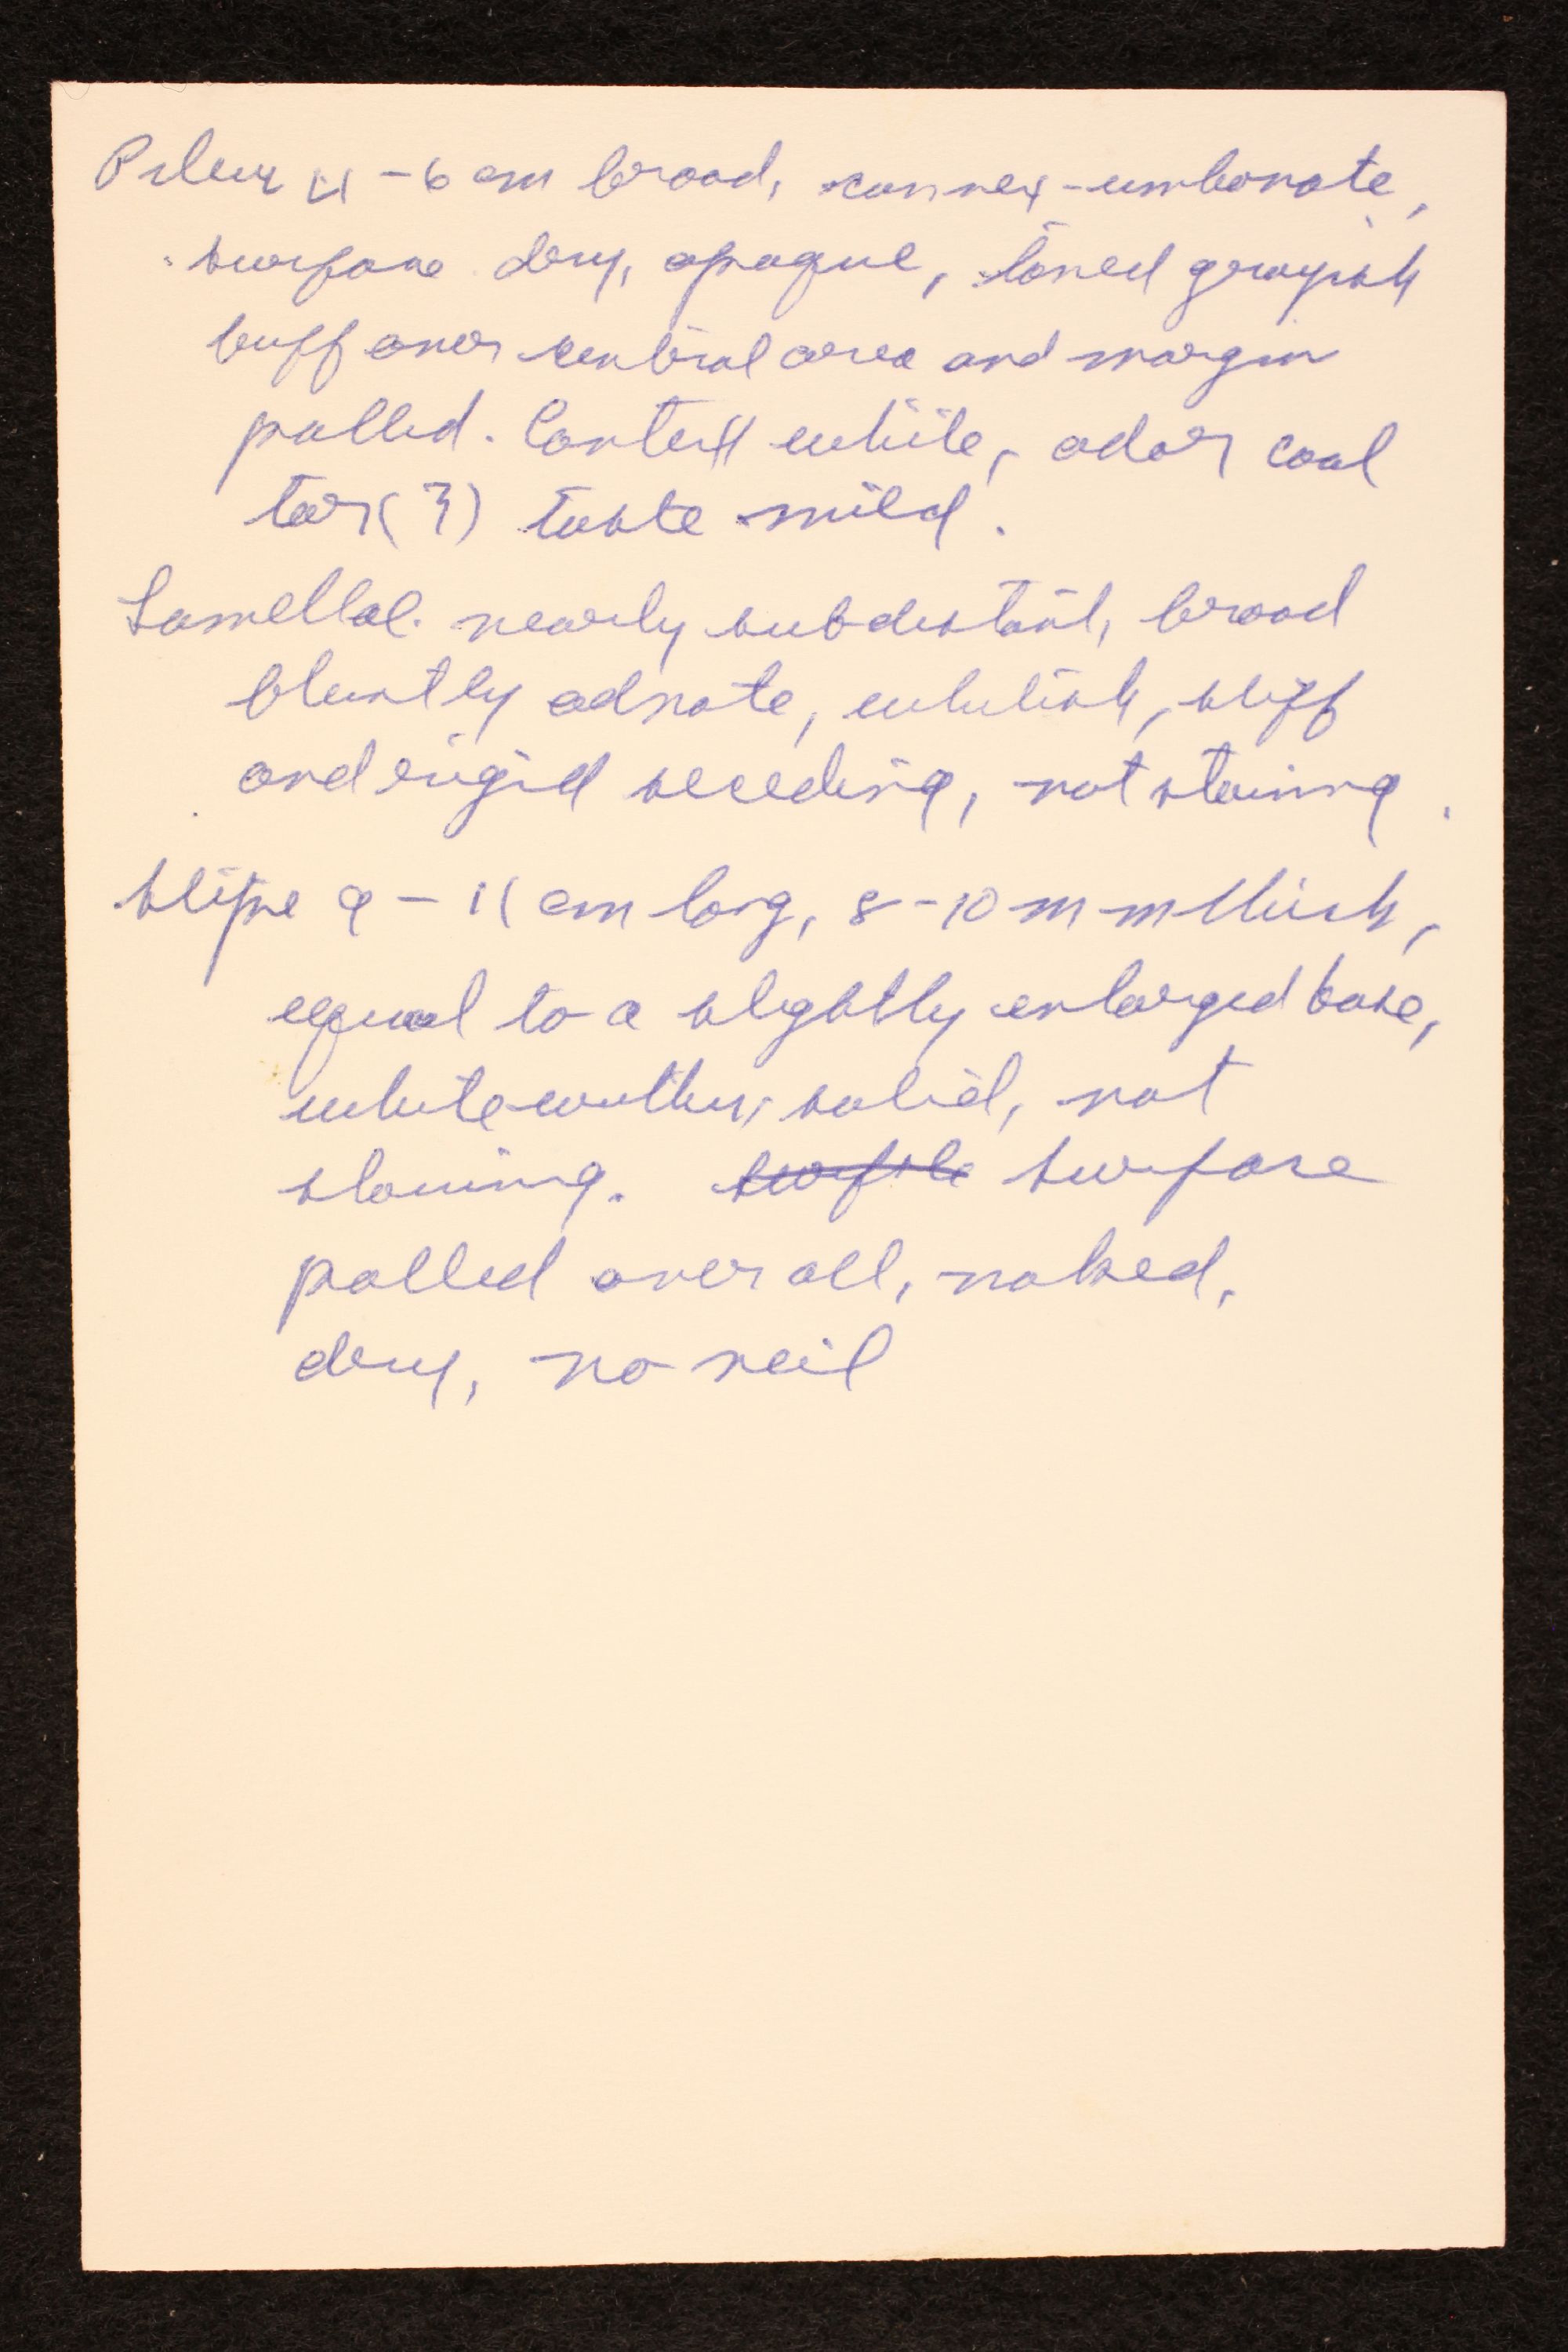 Pileus 4-6 cm broad, convex-umbonate,
surface dry, opaque, toned grayish
buff over central area and margin
pallid. Context white, odor coal
tar(?) taste mild.
Lamellae nearly subdistant, broad
bluntly adnate, whitish, stiff
and rigid seceding, not staining.
Stipe 9-11 cm long, 8-10 mm thick,
equal to a slightly enlarged base,
white within, solid, not
staining. surface
pallid over all, naked,
dry, no veil